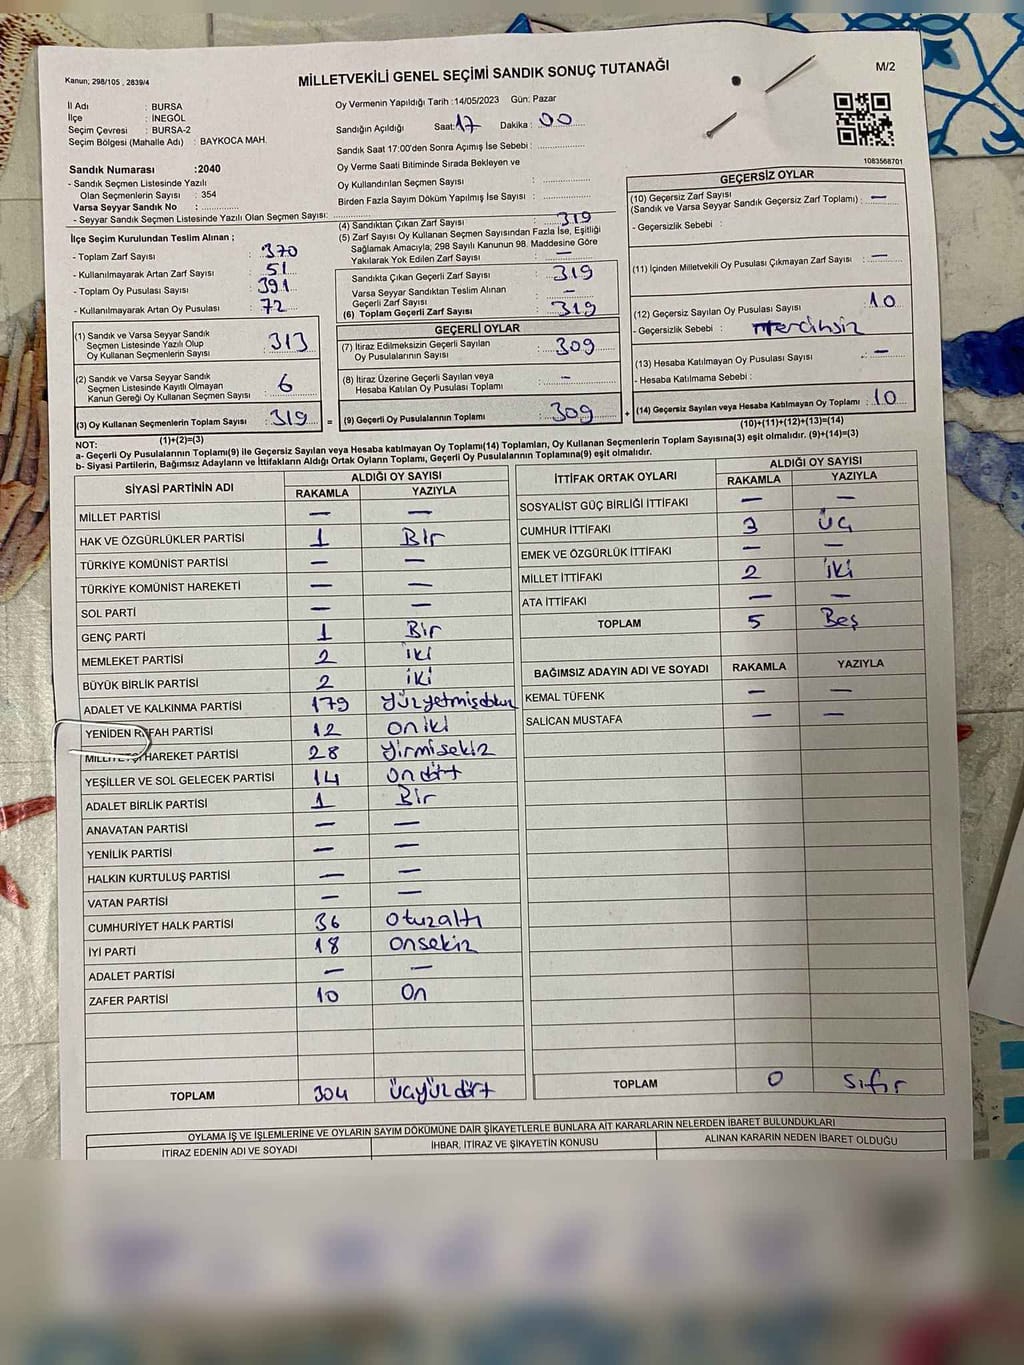 Kanun; 298/105 , 2839/4
MİLLETVEKİLİ GENEL SEÇİMİ SANDIK SONUÇ TUTANAĞI
M/2
İl Adı : BURSA
İlçe : İNEGÖL
Seçim Çevresi : BURSA-2
Seçim Bölgesi (Mahalle Adı) : BAYKOCA MAH.
Sandık Numarası :2040
- Sandık Seçmen Listesinde Yazılı
Olan Seçmenlerin Sayısı : 354
Varsa Seyyar Sandık No :
- Seyyar Sandık Seçmen Listesinde Yazılı Olan Seçmen Sayısı:
Oy Vermenin Yapıldığı Tarih :14/05/2023 Gün: Pazar
Sandığın Açıldığı Saat: 17 Dakika : 00
Sandık Saat 17:00'den Sonra Açımış İse Sebebi :
Oy Verme Saati Bitiminde Sırada Bekleyen ve
Oy Kullandırılan Seçmen Sayısı :
Birden Fazla Sayım Döküm Yapılmış İse Sayısı :
1083568701
İlçe Seçim Kurulundan Teslim Alınan ;
- Toplam Zarf Sayısı : 370
- Kullanılmayarak Artan Zarf Sayısı : 51
- Toplam Oy Pusulası Sayısı : 391
- Kullanılmayarak Artan Oy Pusulası : 72
(1) Sandık ve Varsa Seyyar Sandık
Seçmen Listesinde Yazılı Olup
Oy Kullanan Seçmenlerin Sayısı : 313
(2) Sandık ve Varsa Seyyar Sandık
Seçmen Listesinde Kayıtlı Olmayan
Kanun Gereği Oy Kullanan Seçmen Sayısı : 6
(3) Oy Kullanan Seçmenlerin Toplam Sayısı : 319
(1)+(2)=(3)
=
(4) Sandıktan Çıkan Zarf Sayısı : 319
(5) Zarf Sayısı Oy Kullanan Seçmen Sayısından Fazla İse, Eşitliği
Sağlamak Amacıyla; 298 Sayılı Kanunun 98. Maddesine Göre
Yakılarak Yok Edilen Zarf Sayısı : —
Sandıkta Çıkan Geçerli Zarf Sayısı : 319
Varsa Seyyar Sandıktan Teslim Alınan
Geçerli Zarf Sayısı : —
(6) Toplam Geçerli Zarf Sayısı : 319
GEÇERLİ OYLAR
(7) İtiraz Edilmeksizin Geçerli Sayılan
Oy Pusulalarının Sayısı : 309
(8) İtiraz Üzerine Geçerli Sayılan veya
Hesaba Katılan Oy Pusulası Toplamı : -
(9) Geçerli Oy Pusulalarının Toplamı : 309
+
GEÇERSİZ OYLAR
(10) Geçersiz Zarf Sayısı
(Sandık ve Varsa Seyyar Sandık Geçersiz Zarf Toplamı) : —
- Geçersizlik Sebebi :
(11) İçinden Milletvekili Oy Pusulası Çıkmayan Zarf Sayısı : —
(12) Geçersiz Sayılan Oy Pusulası Sayısı : 10
- Geçersizlik Sebebi : mercihsiz
(13) Hesaba Katılmayan Oy Pusulası Sayısı : —
- Hesaba Katılmama Sebebi :
(14) Geçersiz Sayılan veya Hesaba Katılmayan Oy Toplamı : 10
(10)+(11)+(12)+(13)=(14)
NOT:
a- Geçerli Oy Pusulalarının Toplamı(9) ile Geçersiz Sayılan veya Hesaba katılmayan Oy Toplamı(14) Toplamları, Oy Kullanan Seçmenlerin Toplam Sayısına(3) eşit olmalıdır. (9)+(14)=(3)
b- Siyasi Partilerin, Bağımsız Adayların ve İttifakların Aldığı Ortak Oyların Toplamı, Geçerli Oy Pusulalarının Toplamına(9) eşit olmalıdır.
SİYASİ PARTİNİN ADI ALDIĞI OY SAYISI
RAKAMLA YAZIYLA
MİLLET PARTİSİ — —
HAK VE ÖZGÜRLÜKLER PARTİSİ 1 Bir
TÜRKİYE KOMÜNİST PARTİSİ — —
TÜRKİYE KOMÜNİST HAREKETİ — —
SOL PARTİ — —
GENÇ PARTİ 1 Bir
MEMLEKET PARTİSİ 2 iki
BÜYÜK BİRLİK PARTİSİ 2 iki
ADALET VE KALKINMA PARTİSİ 179 yüzyetmişdokuz
YENİDEN REFAH PARTİSİ 12 oniki
HAREKET PARTİSİ 28 yirmisekiz
YEŞİLLER VE SOL GELECEK PARTİSİ 14 ondört
ADALET BİRLİK PARTİSİ 1 Bir
ANAVATAN PARTİSİ — —
YENİLİK PARTİSİ — —
HALKIN KURTULUŞ PARTİSİ — —
VATAN PARTİSİ — —
CUMHURİYET HALK PARTİSİ 36 otuzaltı
İYİ PARTİ 18 onsekiz
ADALET PARTİSİ — —
ZAFER PARTİSİ 10 On
TOPLAM 304 üçyüzdört
İTTİFAK ORTAK OYLARI ALDIĞI OY SAYISI
RAKAMLA YAZIYLA
SOSYALİST GÜÇ BİRLİĞİ İTTİFAKI — —
CUMHUR İTTİFAKI 3 üç
EMEK VE ÖZGÜRLÜK İTTİFAKI — —
MİLLET İTTİFAKI 2 iki
ATA İTTİFAKI — —
TOPLAM 5 Beş
BAĞIMSIZ ADAYIN ADI VE SOYADI RAKAMLA YAZIYLA
KEMAL TÜFENK — —
SALİCAN MUSTAFA — —
TOPLAM 0 sıfır
OYLAMA İŞ VE İŞLEMLERİNE VE OYLARIN SAYIM DÖKÜMÜNE DAİR ŞİKAYETLERLE BUNLARA AİT KARARLARIN NELERDEN İBARET BULUNDUKLARI
İTİRAZ EDENİN ADI VE SOYADI İHBAR, İTİRAZ VE ŞİKAYETİN KONUSU ALINAN KARARIN NEDEN İBARET OLDUĞU